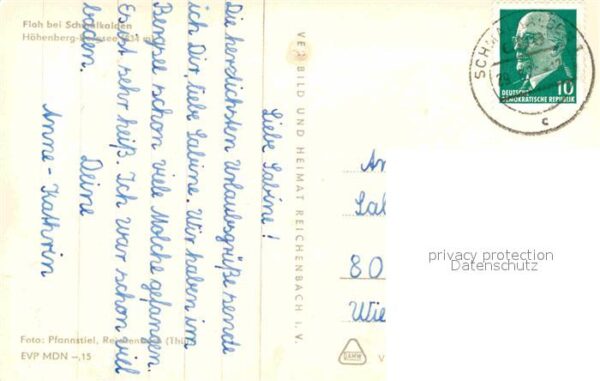 Floh bei Schmalkalden
Höhenberg-Bergsee
Liebe Sabine!
Die herzlichsten Urlaubsgrüße sende
ich Dir, liebe Sabine. Wir haben im
Bergsee schon viele Molche gefangen.
Es ist sehr heiß. Ich war schon viel
baden.
Deine
Anne-Kathrin
Foto: Pfannstiel, (Thür.)
EVP MDN -,15
VEB BILD UND HEIMAT REICHENBACH i. V.
10
DEUTSCHE
DEMOKRATISCHE REPUBLIK
c
80
Wie
privacy protection
Datenschutz
V